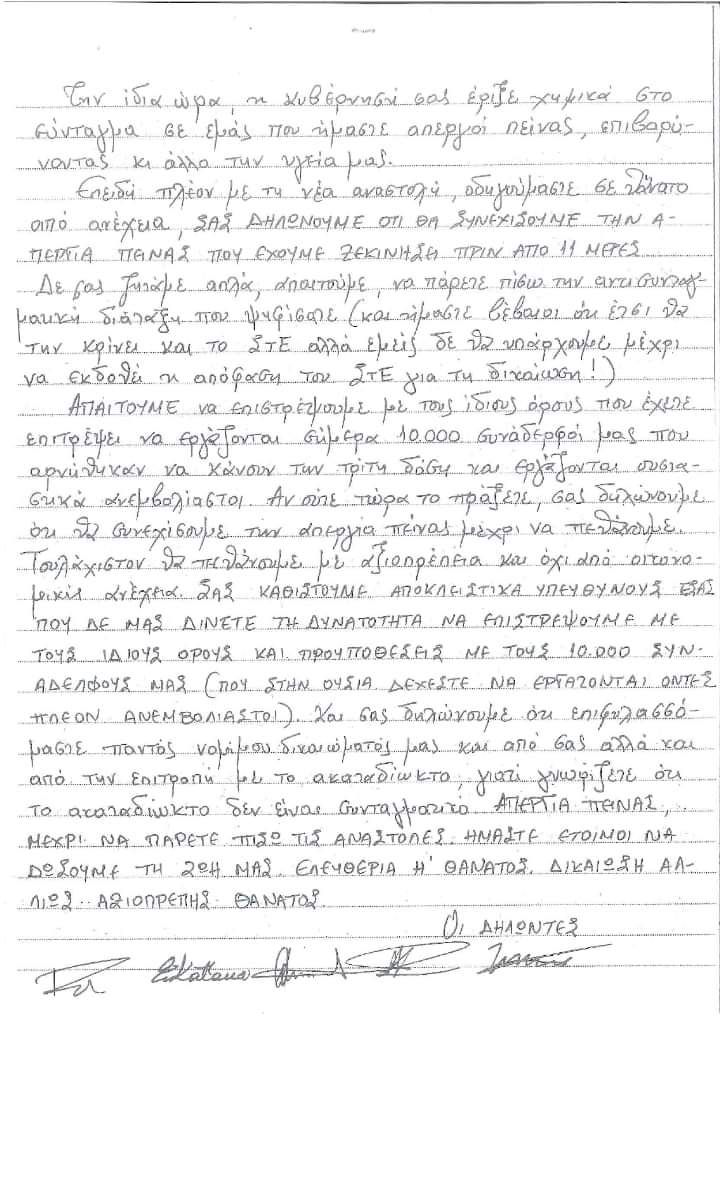 Την ίδια ώρα, η κυβέρνησή σας έριξε χημικά στο
σύνταγμα σε εμάς που ήμαστε απεργοί πείνας, επιβαρύ-
νοντας κι άλλο την υγεία μας.
Επειδή πλέον με τη νέα αναστολή, οδηγούμαστε σε θάνατο
από ανέχεια, ΣΑΣ ΔΗΛΩΝΟΥΜΕ ΟΤΙ ΘΑ ΣΥΝΕΧΙΣΟΥΜΕ ΤΗΝ Α-
ΠΕΡΓΙΑ ΠΕΙΝΑΣ ΠΟΥ ΕΧΟΥΜΕ ΞΕΚΙΝΗΣΕΙ ΠΡΙΝ ΑΠΟ 11 ΜΕΡΕΣ
Δε σας ζητάμε απλά, απαιτούμε, να πάρετε πίσω την αντισυνταγ-
ματική διάταξη που ψηφίσατε (και ήμαστε βέβαιοι ότι έτσι θα
την κρίνει και το ΣτΕ αλλά εμείς δε θα υπάρχουμε μέχρι
να εκδοθεί η απόφαση του ΣτΕ για τη δικαίωση!)
ΑΠΑΙΤΟΥΜΕ να επιστρέψουμε με τους ίδιους όρους που έχετε
επιτρέψει να εργάζονται σήμερα 10.000 συνάδερφοί μας που
αρνήθηκαν να κάνουν την τρίτη δόση και εργάζονται ουσια-
στικά ανεμβολίαστοι. Αν ούτε τώρα το πράξετε, σας δηλώνουμε
ότι θα συνεχίσουμε την απεργία πείνας μέχρι να πεθάνουμε.
Τουλάχιστον θα πεθάνουμε με αξιοπρέπεια και όχι από οικονο-
μική ανέχεια. ΣΑΣ ΚΑΘΙΣΤΟΥΜΕ ΑΠΟΚΛΕΙΣΤΙΚΑ ΥΠΕΥΘΥΝΟΥΣ ΕΣΑΣ
ΠΟΥ ΔΕ ΜΑΣ ΔΙΝΕΤΕ ΤΗ ΔΥΝΑΤΟΤΗΤΑ ΝΑ ΕΠΙΣΤΡΕΨΟΥΜΕ ΜΕ
ΤΟΥΣ ΙΔΙΟΥΣ ΟΡΟΥΣ ΚΑΙ ΠΡΟΥΠΟΘΕΣΕΙΣ ΜΕ ΤΟΥΣ 10.000 ΣΥΝ-
ΑΔΕΛΦΟΥΣ ΜΑΣ (ΠΟΥ ΣΤΗΝ ΟΥΣΙΑ ΔΕΧΕΣΤΕ ΝΑ ΕΡΓΑΖΟΝΤΑΙ ΟΝΤΕΣ
ΠΛΕΟΝ ΑΝΕΜΒΟΛΙΑΣΤΟΙ). Και σας δηλώνουμε ότι επιφυλασσό-
μαστε παντός νομίμου δικαιώματός μας και από σας αλλά και
από την επιτροπή με το ακαταδίωκτο, γιατί γνωρίζετε ότι
το ακαταδίωκτο δεν είναι συνταγματικό ΑΠΕΡΓΙΑ ΠΕΙΝΑΣ,
ΜΕΧΡΙ ΝΑ ΠΑΡΕΤΕ ΠΙΣΩ ΤΙΣ ΑΝΑΣΤΟΛΕΣ. ΗΜΑΣΤΕ ΕΤΟΙΜΟΙ ΝΑ
ΔΩΣΟΥΜΕ ΤΗ ΖΩΗ ΜΑΣ. ΕΛΕΥΘΕΡΙΑ Η' ΘΑΝΑΤΟΣ. ΔΙΚΑΙΩΣΗ ΑΛ-
ΛΙΩΣ ΑΞΙΟΠΡΕΠΗΣ ΘΑΝΑΤΟΣ.
Οι ΔΗΛΩΝΤΕΣ